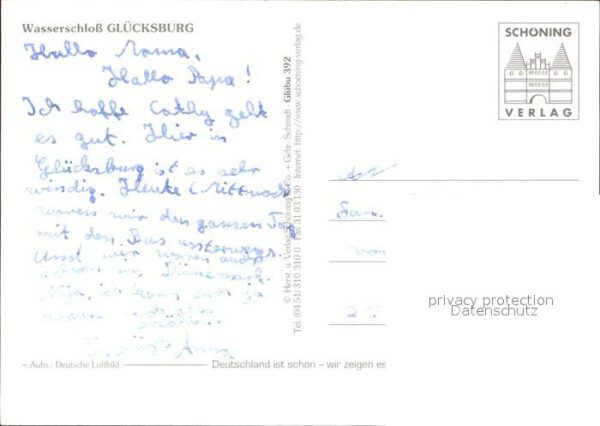 Wasserschloß GLÜCKSBURG
Hallo Mama,
Hallo Papa!
Ich hoffe Cathy geht
es gut. Hier in
Glücksburg ist es sehr
windig. Heute (Mittwoch
waren wir den ganzen Tag
mit den Bus unterwegs.
Und wir waren auch
schon in Dänemark.
ja
Anna
– Aufn.: Deutsche Luftbild
© Herst. u. Verlag Schöning & Co. + Gebr. Schmidt Glübu 392
Tel. (04 51) 310 310 0 Fax 31 03 130 Internet: http://www.schoening-verlag.de
Deutschland ist schön – wir zeigen es
SCHÖNING
VERLAG
Fam.
privacy protection
Datenschutz